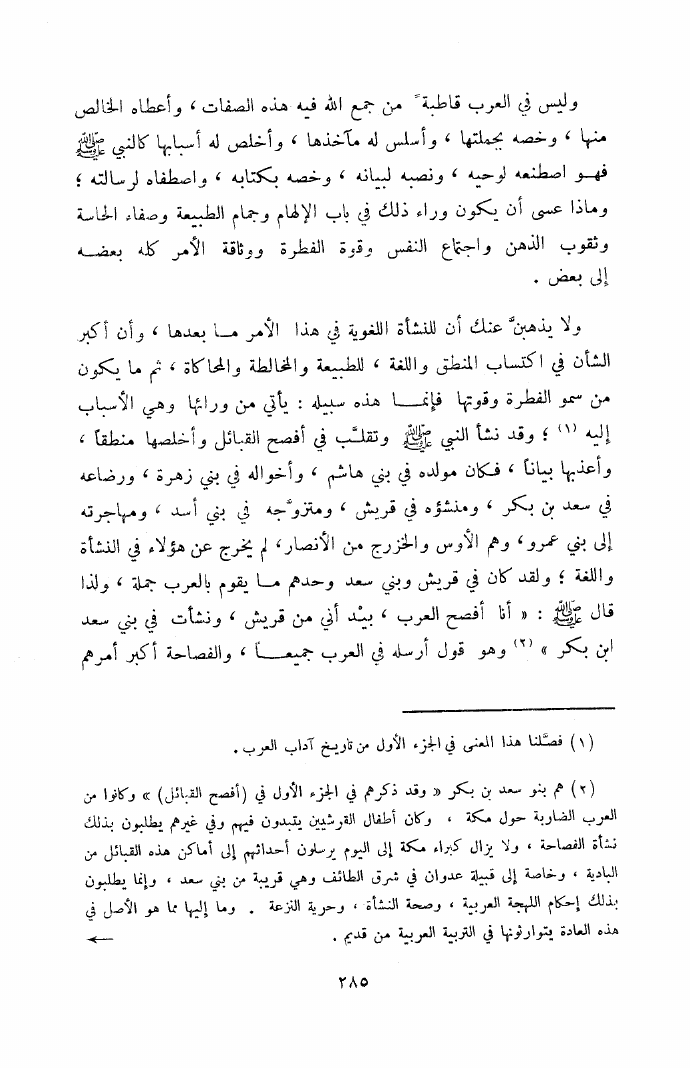 وليس في العرب قاطبةً من جمع الله فيه هذه الصفات ، وأعطاه الخالص
منها ، وخصه بجملتها ، وأسلس له مآخذها ، وأخلص له أسبابها كالنبي ﷺ
فهو اصطنعه لوحيه ، ونصبه لبيانه ، وخصه بكتابه ، واصطفاه لرسالته ؛
وماذا عسى أن يكون وراء ذلك في باب الإلهام وجمام الطبيعة وصفاء الحاسة
وثقوب الذهن واجتماع النفس وقوة الفطرة ووثاقة الأمر كله بعضه
إلى بعض .
ولا يذهبنَّ عنك أن للنشأة اللغوية في هذا الأمر ما بعدها ، وأن أكبر
الشأن في اكتساب المنطق واللغة ، للطبيعة والمخالطة والمحاكاة ، ثم ما يكون
من سمو الفطرة وقوتها فإنما هذه سبيله : يأتي من ورائها وهي الأسباب
إليه (١) ؛ وقد نشأ النبي ﷺ وتقلَّب في أفصح القبائل وأخلصها منطقاً ،
وأعذبها بياناً ، فكان مولده في بني هاشم ، وأخواله في بني زهرة ، ورضاعه
في سعد بن بكر ، ومنشؤه في قريش ، ومتزوَّجه في بني أسد ، ومهاجرته
إلى بني عمرو، وهم الأوس والخزرج من الأنصار، لم يخرج عن هؤلاء في النشأة
واللغة ؛ ولقد كان في قريش وبني سعد وحدهم ما يقوم بالعرب جملة ، ولذا
قال ﷺ : « أنا أفصح العرب ، بيْد أني من قريش ، ونشأت في بني سعد
ابن بكر » (٢) وهو قول أرسله في العرب جميعاً ، والفصاحة أكبر أمرهم
(١) فصَّلنا هذا المعنى في الجزء الأول من تاريخ آداب العرب .
(٢) هم بنو سعد بن بكر « وقد ذكرهم في الجزء الأول في (أفصح القبائل) » وكانوا من
العرب الضاربة حول مكة ، وكان أطفال القرشيين يتبدون فيهم وفي غيرهم يطلبون بذلك
نشأة الفصاحة ، ولا يزال كبراء مكة إلى اليوم يرسلون أحداثهم إلى أماكن هذه القبائل من
البادية ، وخاصة إلى قبيلة عدوان في شرق الطائف وهي قريبة من بني سعد ، وإنما يطلبون
بذلك إحكام اللهجة العربية ، وصحة النشأة ، وحرية النزعة . وما إليها مما هو الأصل في
هذه العادة يتوارثونها في التربية العربية من قديم . ←
٢٨٥